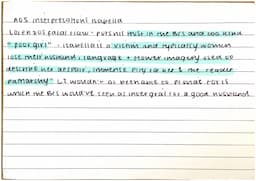 AO5 interpretation: Isabella
Lorenzo's fatal flaw - puts his trust in the Brs and too kind
"poor girl" - Isabella is a victim and typically women
lose their husband, language + flower imagery used to
describe her despair, immense pity for her & the reader
patriarchy L> wouldn't of been able to
which the Brs would've seen as intergral for a good husband